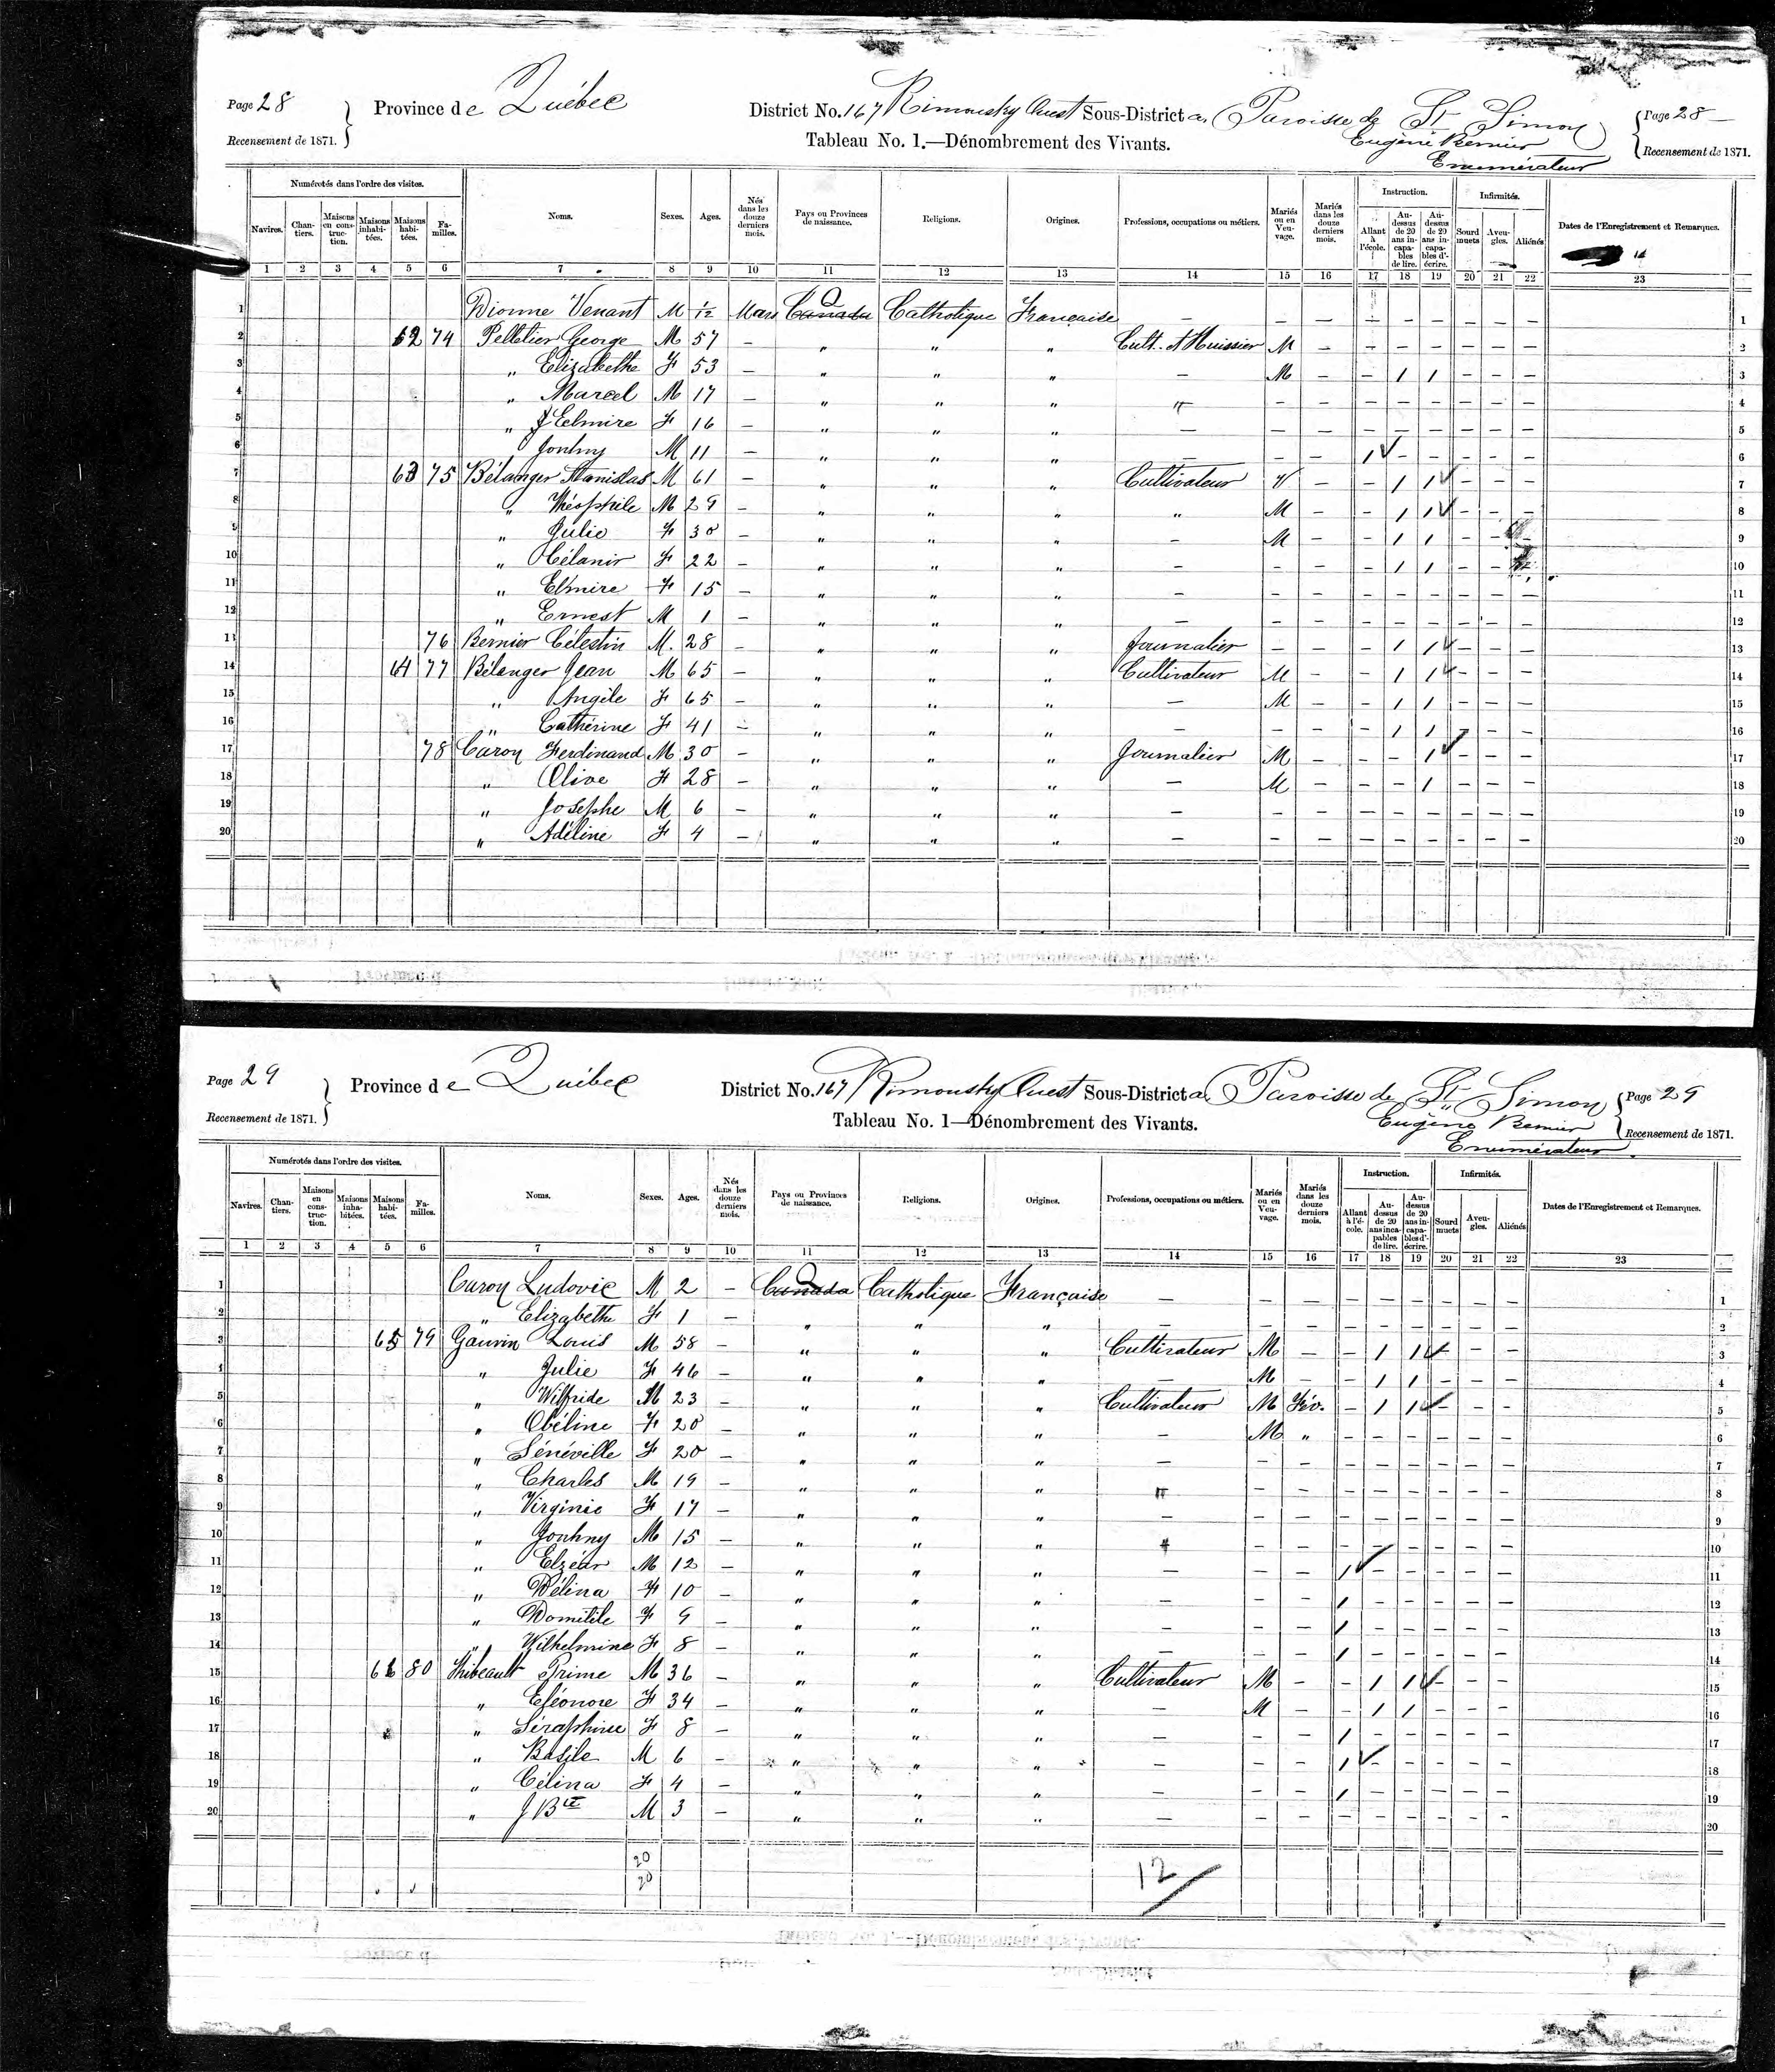 Page 28 Province de Québec District No. 167 Rimousky Ouest Sous-District a, Paroisse de St Simon Page 28
Recensement de 1871. Tableau No. 1.—Dénombrement des Vivants. Eugène Bernier Recensement de 1871.
Enumérateur
Numérotés dans l'ordre des visites. Instruction. Infirmités.
Navires. Chantiers. Maisons en construction. Maisons inhabitées. Maisons habitées. Familles. Noms. Sexes. Ages. Nés dans les douze derniers mois. Pays ou Provinces de naissance. Religions. Origines. Professions, occupations ou métiers. Mariés ou en Veuvage. Mariés dans les douze derniers mois. Allant à l'école. Au-dessus de 20 ans incapables de lire. Au-dessus de 20 ans incapables d'écrire. Sourd muets Aveugles. Aliénés Dates de l'Enregistrement et Remarques.
1 2 3 4 5 6 7 8 9 10 11 12 13 14 15 16 17 18 19 20 21 22 23
1 Dionne Venant M 1/12 Mars Canada Q Catholique Française — — — — — — — — — 1
2 62 74 Pelletier George M 57 — " " " Cult. et Huissier M — — — — — — — 2
3 " Elizabethe F 53 — " " " — M — — 1 1 — — — 3
4 " Marcel M 17 — " " " " — — — — — — — — 4
5 " Elmire F 16 — " " " — — — — — — — — — 5
6 " Jonhny M 11 — " " " — — — 1 — — — — — 6
7 63 75 Bélanger Stanislas M 61 — " " " Cultivateur V — — 1 1 — — — 7
8 " Théophile M 29 — " " " " M — — 1 1 — — — 8
9 " Julie F 30 — " " " — M — — 1 1 — — — 9
10 " Célanir F 22 — " " " — — — — 1 1 — — — 10
11 " Elmire F 15 — " " " — — — — — — — — — 11
12 " Ernest M 1 — " " " — — — — — — — — — 12
13 76 Bernier Célestin M. 28 — " " " Journalier — — — 1 1 — — — 13
14 64 77 Bélanger Jean M 65 — " " " Cultivateur M — — 1 1 — — — 14
15 " Angèle F 65 — " " " — M — — 1 1 — — — 15
16 " Cathérine F 41 — " " " — — — — 1 1 — — — 16
17 78 Caron Ferdinand M 30 — " " " Journalier M — — — 1 — — — 17
18 " Olive F 28 — " " " — M — — — 1 — — — 18
19 " Josephe M 6 — " " " — — — — — — — — — 19
20 " Adéline F 4 — " " " — — — — — — — — — 20
Page 29 Province de Québec District No. 167 Rimousky Ouest Sous-District a Paroisse de St Simon Page 29
Recensement de 1871. Tableau No. 1—Dénombrement des Vivants. Eugène Bernier Recensement de 1871.
Enumérateur
Numérotés dans l'ordre des visites. Instruction. Infirmités.
Navires. Chantiers. Maisons en construction. Maisons inhabitées. Maisons habitées. Familles. Noms. Sexes. Ages. Nés dans les douze derniers mois. Pays ou Provinces de naissance. Religions. Origines. Professions, occupations ou métiers. Mariés ou en Veuvage. Mariés dans les douze derniers mois. Allant à l'école. Au-dessus de 20 ans incapables de lire. Au-dessus de 20 ans incapables d'écrire. Sourd muets Aveugles. Aliénés Dates de l'Enregistrement et Remarques.
1 2 3 4 5 6 7 8 9 10 11 12 13 14 15 16 17 18 19 20 21 22 23
1 Caron Ludovic M 2 — Canada Q Catholique Française — — — — — — — — — 1
2 " Elizabethe F 1 — " " " — — — — — — — — — 2
3 65 79 Gauvin Louis M 58 — " " " Cultivateur M — — 1 1 — — — 3
4 " Julie F 46 — " " " — M — — 1 1 — — — 4
5 " Wilfride M 23 — " " " Cultivateur M Fév. — 1 1 — — — 5
6 " Obéline F 20 — " " " — M " — — — — — — 6
7 " Sénéville F 20 — " " " — — — — — — — — — 7
8 " Charles M 19 — " " " " — — — — — — — — 8
9 " Virginie F 17 — " " " — — — — — — — — — 9
10 " Jonhny M 15 — " " " — — — — — — — — 10
11 " Elzéar M 12 — " " " — — — 1 — — — — — 11
12 " Délina F 10 — " " " — — — 1 — — — — — 12
13 " Domitile F 9 — " " " — — — 1 — — — — — 13
14 " Wilhelmine F 8 — " " " — — — 1 — — — — — 14
15 66 80 Thibeault Prime M 36 — " " " Cultivateur M — — 1 1 — — — 15
16 " Eléonore F 34 — " " " — M — — 1 1 — — — 16
17 " Séraphine F 8 — " " " — — — 1 — — — — — 17
18 " Basile M 6 — " " " — — — 1 — — — — — 18
19 " Célina F 4 — " " " — — — 1 — — — — — 19
20 " J Bte M 3 — " " " — — — — — — — — — 20
20 12
20